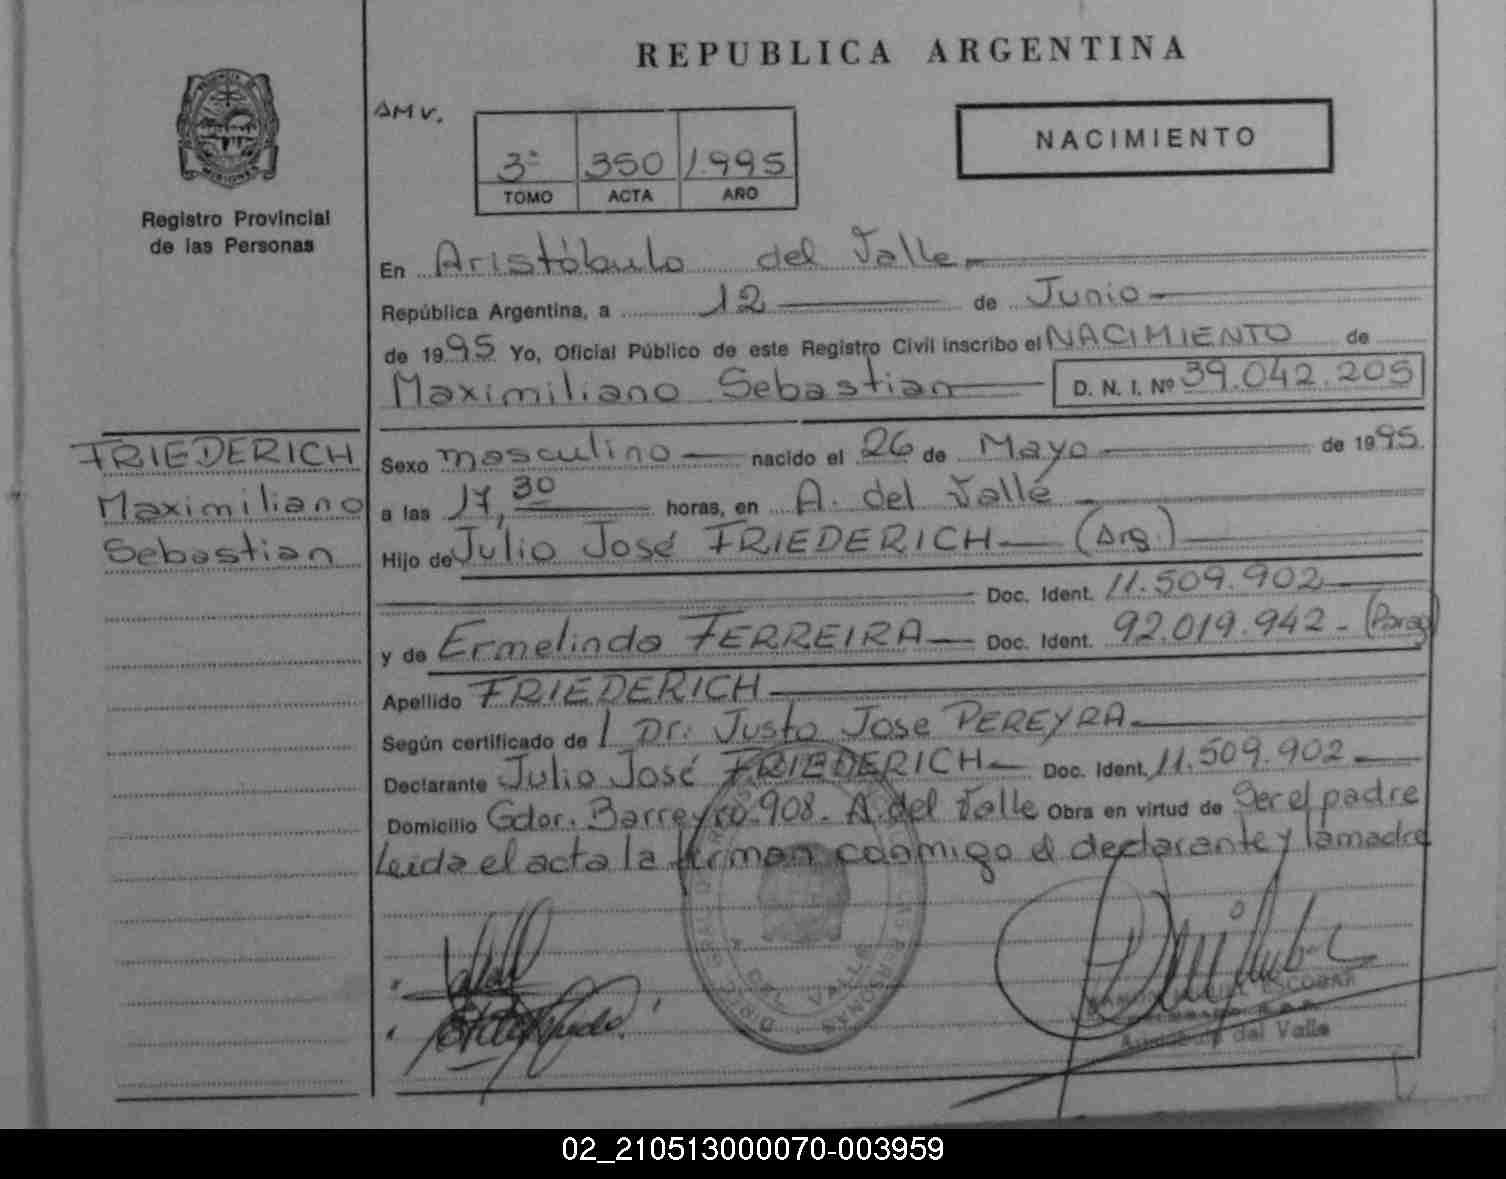 REPUBLICA ARGENTINA
AMV.
NACIMIENTO
3º 350 1.995
TOMO ACTA AÑO
MISIONES
Registro Provincial
de las Personas
En Aristóbulo del Valle
República Argentina, a 12 de Junio
de 1995 Yo, Oficial Público de este Registro Civil inscribo el NACIMIENTO de
Maximiliano Sebastian D. N. I. Nº 39.042.205
FRIEDERICH
Maximiliano
Sebastian
Sexo masculino nacido el 26 de Mayo de 1995.
a las 17,30 horas, en A. del Valle
Hijo de Julio José FRIEDERICH (Arg.)
Doc. Ident. 11.509.902
y de Ermelinda FERREIRA Doc. Ident. 92.019.942 - (Parag)
Apellido FRIEDERICH
Según certificado de l Dr. Justo Jose PEREYRA
Declarante Julio José FRIEDERICH Doc. Ident. 11.509.902
Domicilio Gdor. Barreyro 908. A. del Valle Obra en virtud de ser el padre
Leida el acta la firman conmigo el declarante y la madre
DEL VALLE
PERSONAS
ESCOBAR
del Valle
02_210513000070-003959